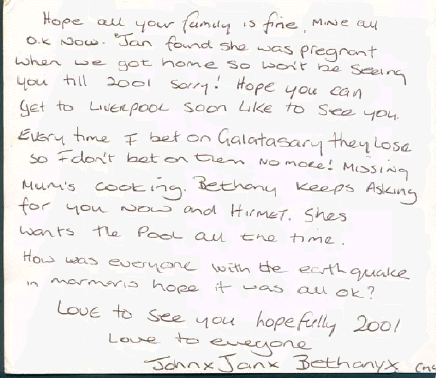 Hope all your family is fine, Mine all
O.K NOW. Jan found she was pregnant
when we got home so won't be seeing
you till 2001 sorry! Hope you can
get to LIVERPOOL soon Like to see you.
Every time I bet on Galatasary they Lose
so I don't bet on them no more! Missing
Mum's cooking. Bethany keeps Asking
for you Now and Hikmet. Shes
wants the Pool all the time.
How was everyone with the earthquake
in marmaris hope it was all ok?
Love to see you hopefully 2001
Love to everyone
John x Jan x Bethany x